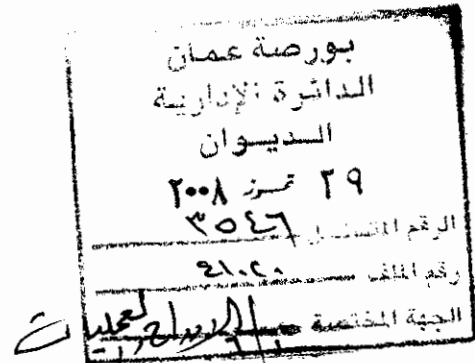 بورصة عمان
الدائرة الإدارية
الديوان
٢٩ تموز ٢٠٠٨
الرقم المتسلسل ٣٥٤٦
رقم الملف ٤١٠٢٠
الجهة المختصة